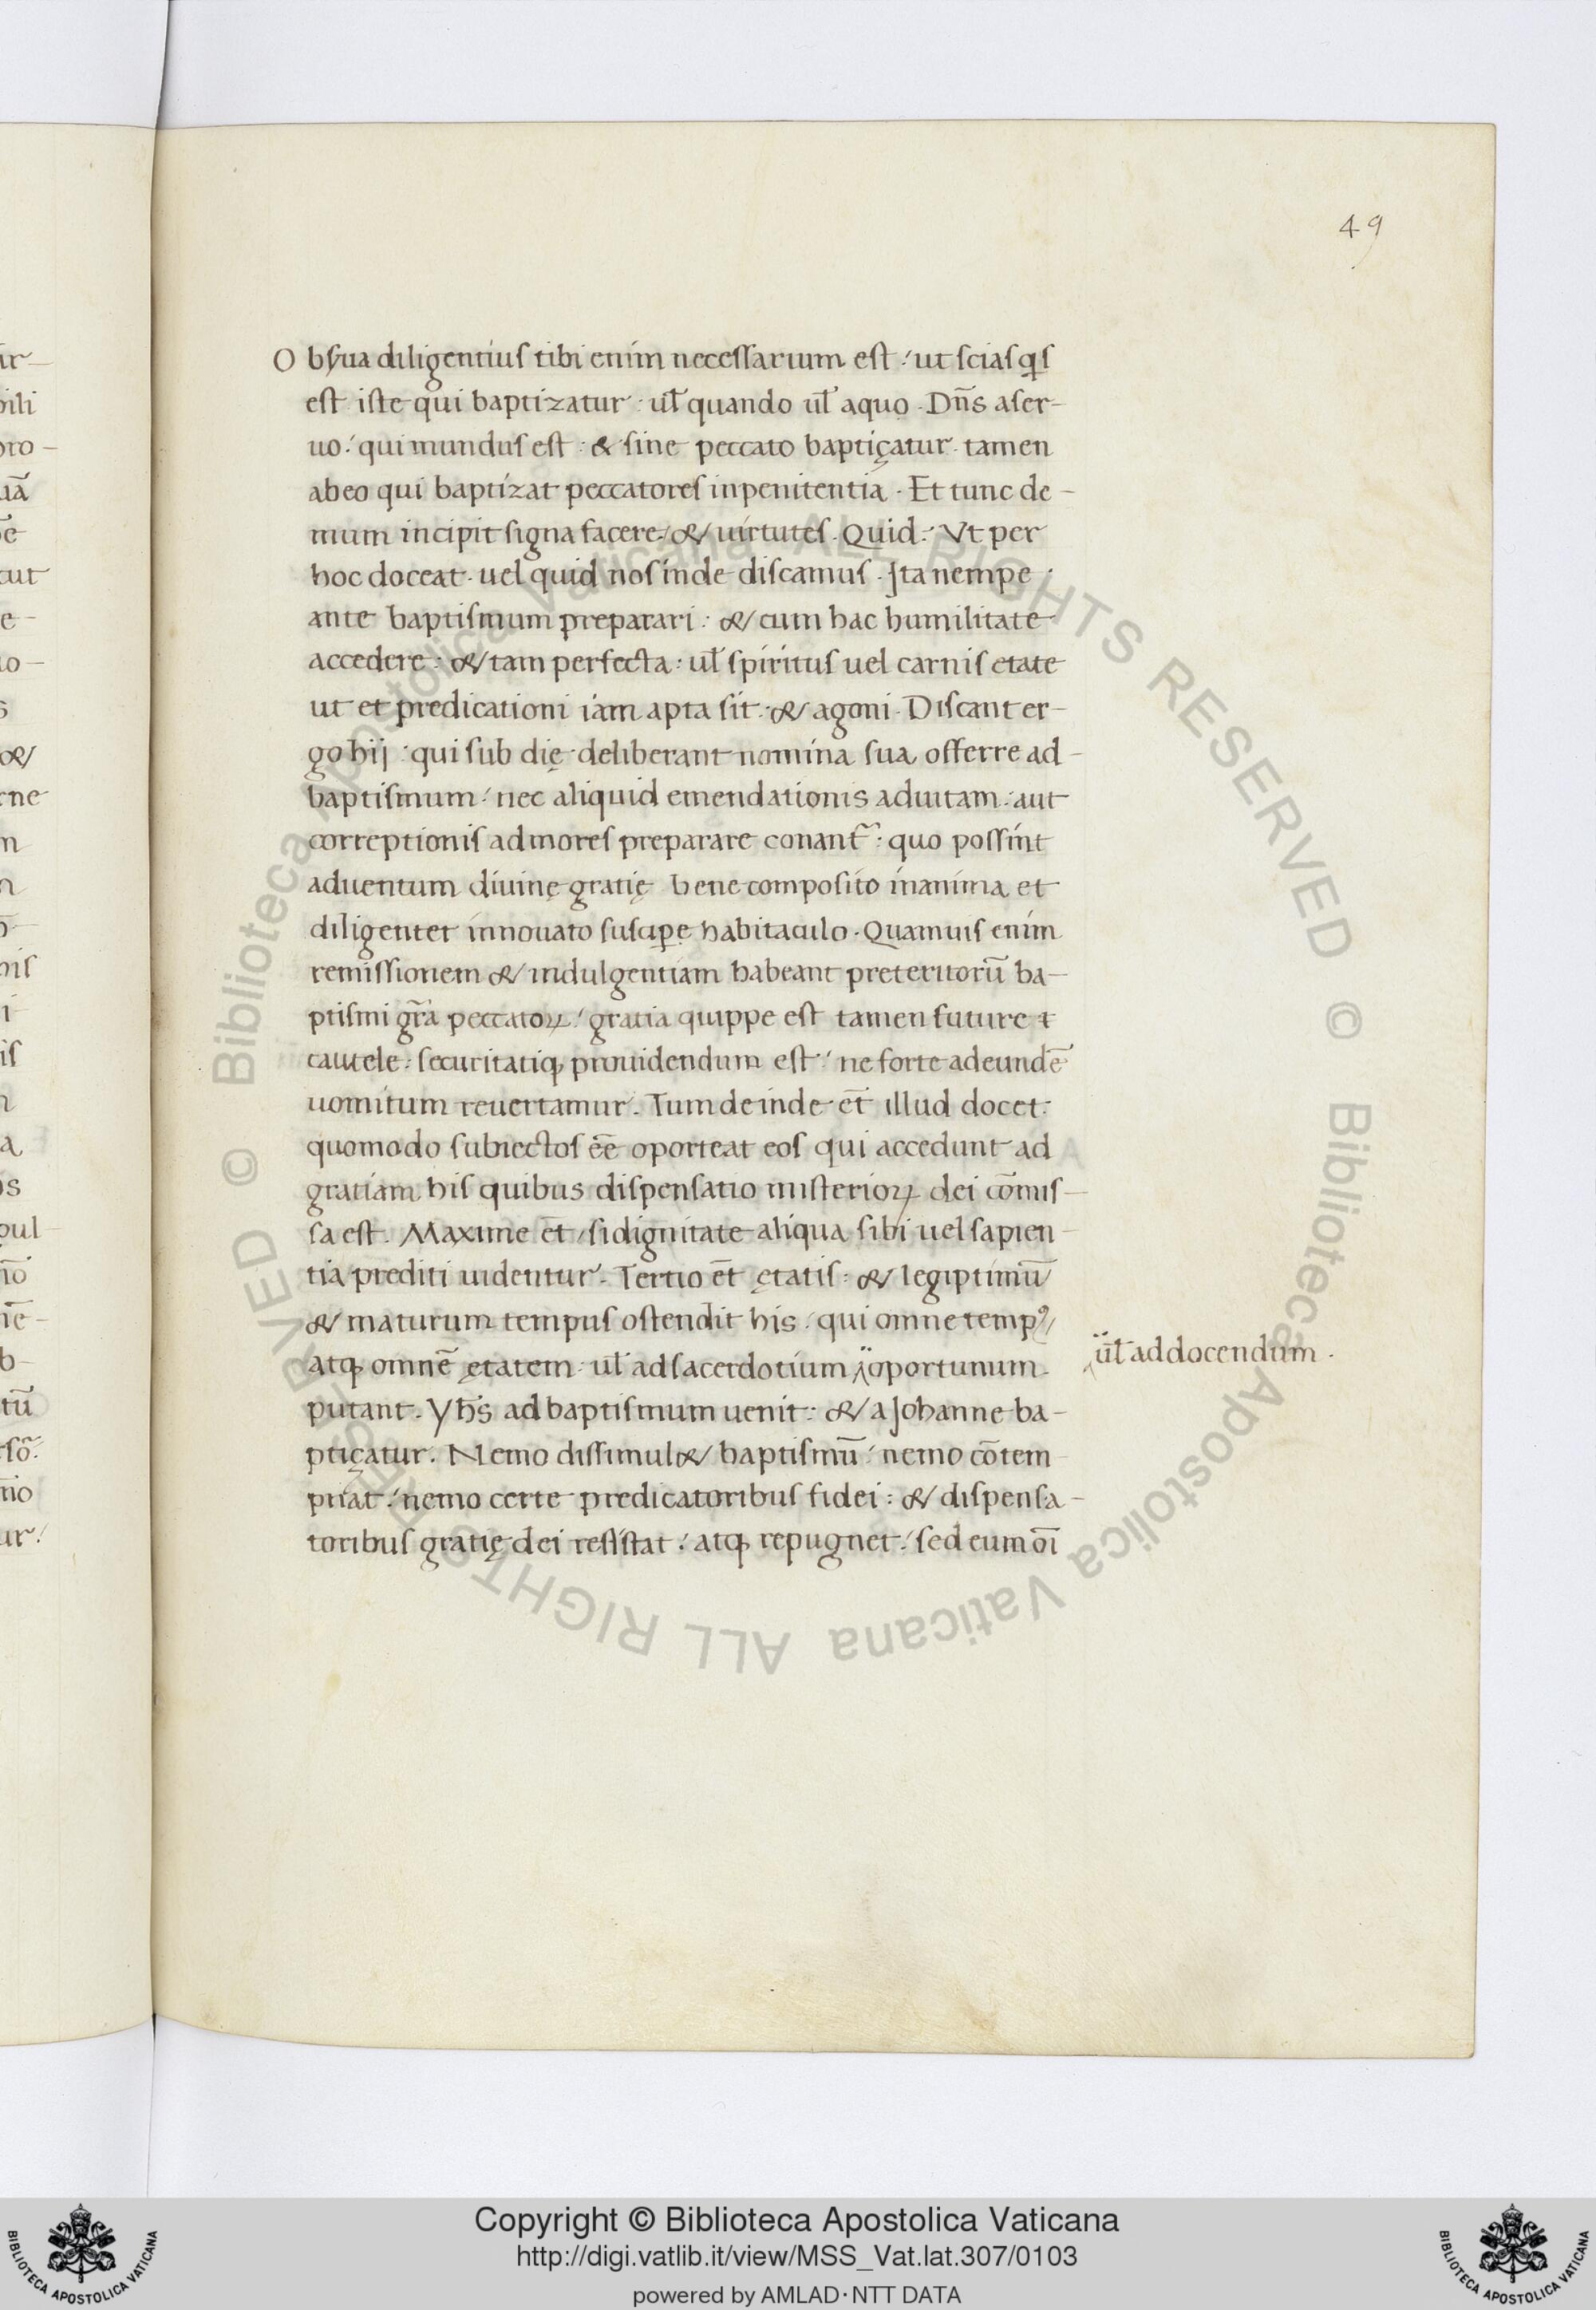 49
O bſꝰua diligentiuſ tibi enim neceſſarium eſt : ut ſciaſ qͥſ
eſt iſte qui baptizatur : ul̄ quando ul̄ aquo . Dn̄s aſer-
uo : qui munduſ eſt : & ſine peccato baptiçatur . tamen
abeo qui baptizat peccatoreſ inpenitentia . Et tunc de-
mum incipit ſigna facere : & uirtuteſ . Quid : Vt per
hoc doceat . uel quid noſ inde diſcamuſ . Jta nempe
ante baptiſmum preparari : & cum hac humilitate
accedere : & tam perfecta : ul̄ ſpirituſ uel carniſ etate
ut et predicationi iam apta ſit : & agoni . Diſcant er-
go hij : qui ſub die deliberant nomina ſua offerre ad-
baptiſmum : nec aliquid emendationis aduitam : aut
correptioniſ admoreſ preparare conant᷑ : quo poſſint
aduentum diuinę gratię bene compoſito inanima et
diligenter innouato ſuſcipe habitaculo . Quamuiſ enim
remiſſionem & indulgentiam habeant preteritorū ba-
ptiſmi gr̄a peccatoꝝ : gratia quippe eſt tamen future
cautele : ſecuritatiq; prouidendum eſt : ne forte adeundē
uomitum reuertamur . Tum deinde et̄ illud docet :
quomodo ſubiectoſ eē oporteat eoſ qui accedunt ad
gratiam hiſ quibus diſpenſatio miſterioꝝ dei cōmiſ-
ſa eſt . Maxime et̄ / ſi dignitate aliqua ſibi uel ſapien-
tia prediti uidentur . Tertio et̄ ętatiſ : & legiptimū
& maturum tempuſ oſtendit his : qui omne tempꝰ /
atq; omnē ętatem : ul̄ ad ſacerdotium oportunum .
ul̄ ad docendum .
putant . Yhs̄ ad baptiſmum uenit : & a Johanne ba-
ptiçatur . Nemo diſſimul& baptiſmū : nemo cōtem
pnat : nemo certe predicatoribuſ fidei : & diſpenſa-
toribuſ gratię dei reſiſtat : atq; repugnet : ſed eum oī
Copyright © Biblioteca Apostolica Vaticana
http://digi.vatlib.it/view/MSS_Vat.lat.307/0103
powered by AMLAD·NTT DATA
BIBLIOTECA APOSTOLICA VATICANA
BIBLIOTECA APOSTOLICA VATICANA
© Biblioteca Apostolica Vaticana ALL RIGHTS RESERVED © Biblioteca Apostolica Vaticana ALL RIGHTS RESERVED